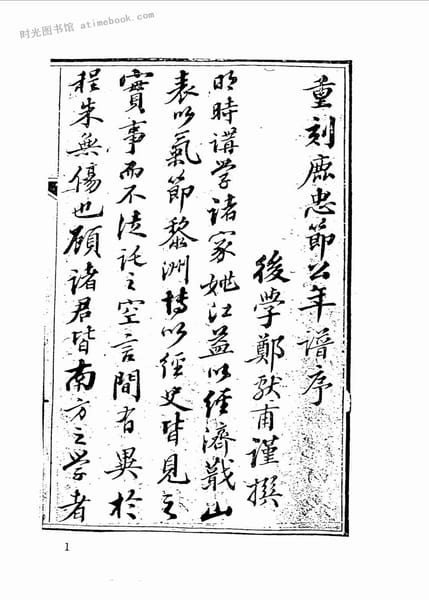 时光图书馆 atimebook.com
重刻鹿忠節公年譜序
後學鄭獻甫謹撰
明時講學諸家姚江益以經濟蕺山
表以氣節黎洲博以經史皆見之
實事而不徒託之空言間有異於
程朱無傷也顧諸君皆南方之學者
1